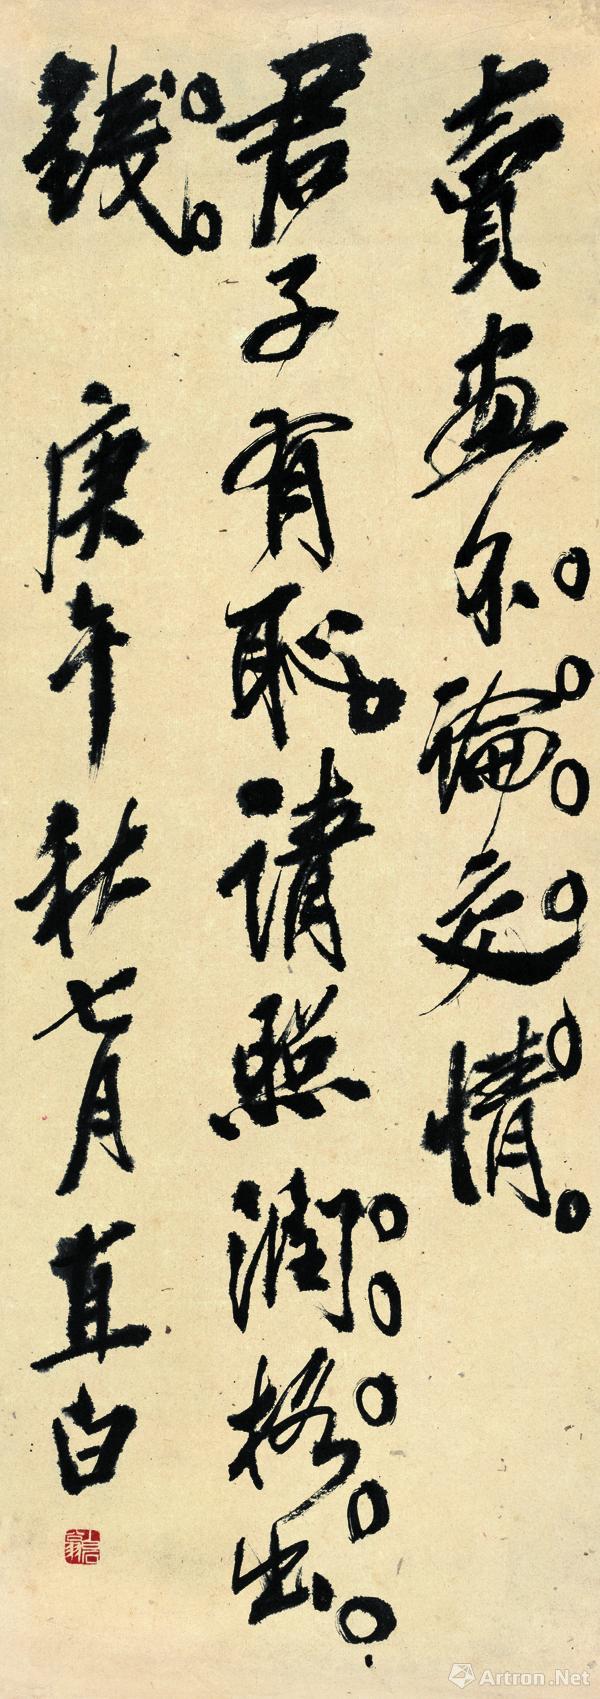 賣畫不論交情
君子有恥請照潤格出
錢 庚午秋七月直白
Artron.Net